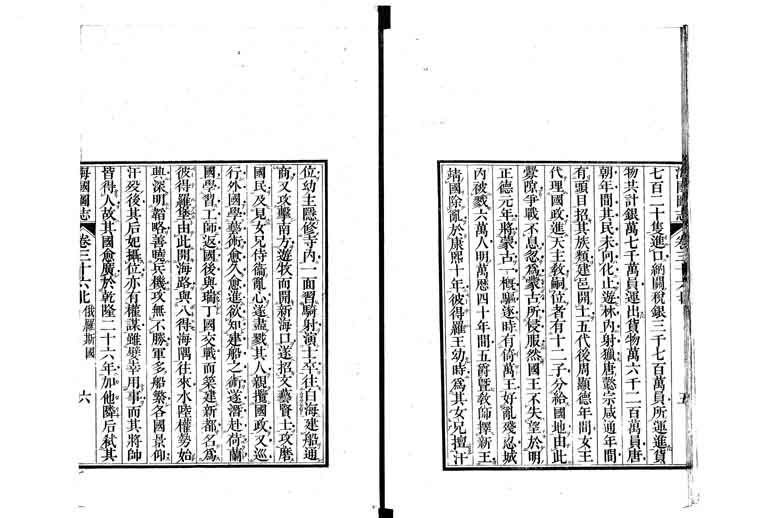 海國圖志
卷三十六
五
七百二十隻進口納關稅銀三千七百萬員所運進貨
物共計銀萬七千萬員運出貨物萬六千二百萬員唐
朝年間其民未向化止遊林內射獵唐懿宗咸通年間
有頭目招其族類建邑開土五代後周顯德年間女王
代理國政進天主教嗣位者有十二子分給國地由此
釁隙爭戰不息忽為蒙古所侵服然國王不失望於明
正德元年將蒙古一概驅逐時有倚萬王好亂殘忍城
內被戮六萬人明萬曆四十年間五爵暨教師擇新王
靖國除亂於康熙十年彼得羅王幼時為其女兄擅汗
位幼主隱修寺內一面習騎射演士卒往白海建船通
商又攻擊南方遊牧而開新海口遂招文藝賢士攻磨
國民及見女兄侍衞亂心遂盡戮其人親攬國政又巡
行外國學藝術愈久愈進欲知建船之術遂潛赴荷蘭
國學習工師返國後與瑞丁國交戰而築建新都名為
彼得羅堡由此開海路與八得海隅往來水陸權勢始
典深明韜略善曉兵機攻無不勝軍多船繁各國景仰
汗歿後其后妃攝位亦有權謀雖嬖幸用事而其將帥
皆得人故其國愈廣於乾隆二十六年加他隣后弒其
海國圖志
卷三十六
北
俄羅斯國
六